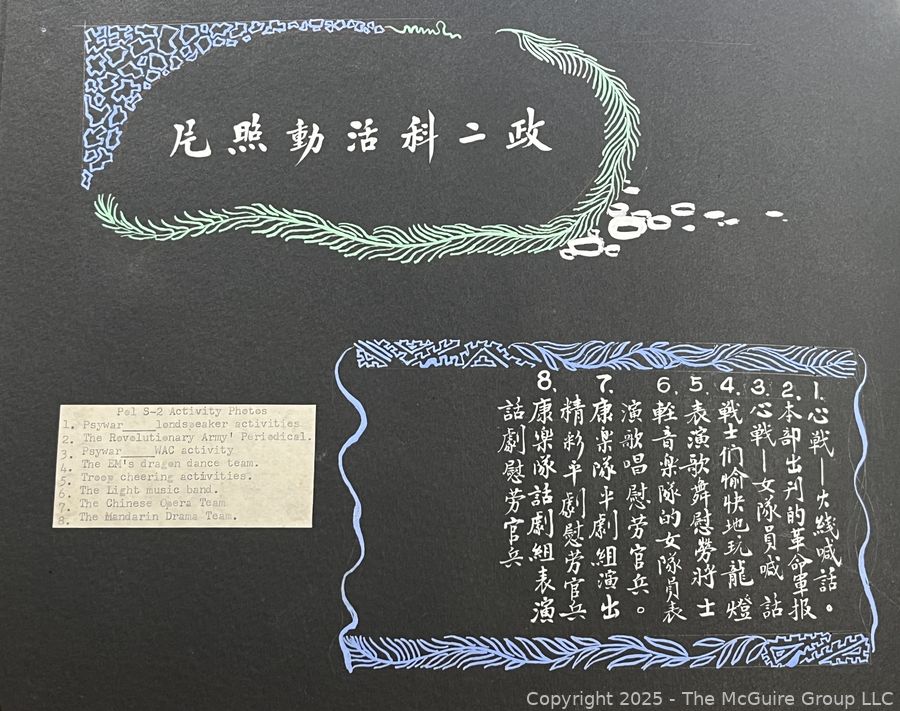 政二科活動照片
1. 心戰—火线喊話。
2. 本部出刋的革命軍报
3. 心戰—女隊員喊話
4. 戰士们愉快地玩龍燈
5. 表演歌舞慰勞將士
6. 輕音楽隊的女隊員表
演歌唱慰劳官兵。
7. 康樂隊平劇組演出
精彩平劇慰劳官兵
8. 康樂隊話劇組表演
話劇慰劳官兵
Pol S-2 Activity Photos
1. Psywar____londspeaker activities
2. The Revolutionary Army' Periodical.
3. Psywar____WAC activity
4. The EM's dragon dance team.
5. Troop cheering activities.
6. The Light music band.
7. The Chinese Opera Team
8. The Mandarin Drama Team.
Copyright 2025 - The McGuire Group LLC